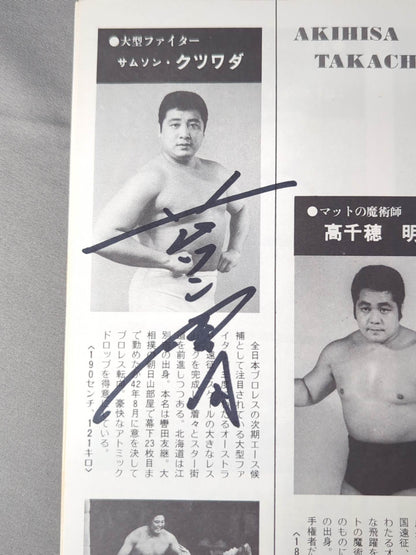 ●大型ファイター
サムソン・クツワダ
AKIHISA
TAKACH
●マットの魔術師
高千穂 明
全日本プロレスの次期エース候
補として注目されている大型ファ
イター。
オーストラ
リア遠征
ルの大きなレス
を完成し、増々とスター街
道を前進しつつある。北海道は江
別
の出身。本名は轡田友継。大
相撲の朝日山部屋で幕下23枚目ま
で勤めたが42年8月に意を決して
プロレス転向。豪快なアトミック
ドロップを得意
ている。
〈190センチ、121キロ〉
国遠征
わたるオ
な飛躍を
トの魔術
のものに
の出身。
手権者た
〈18